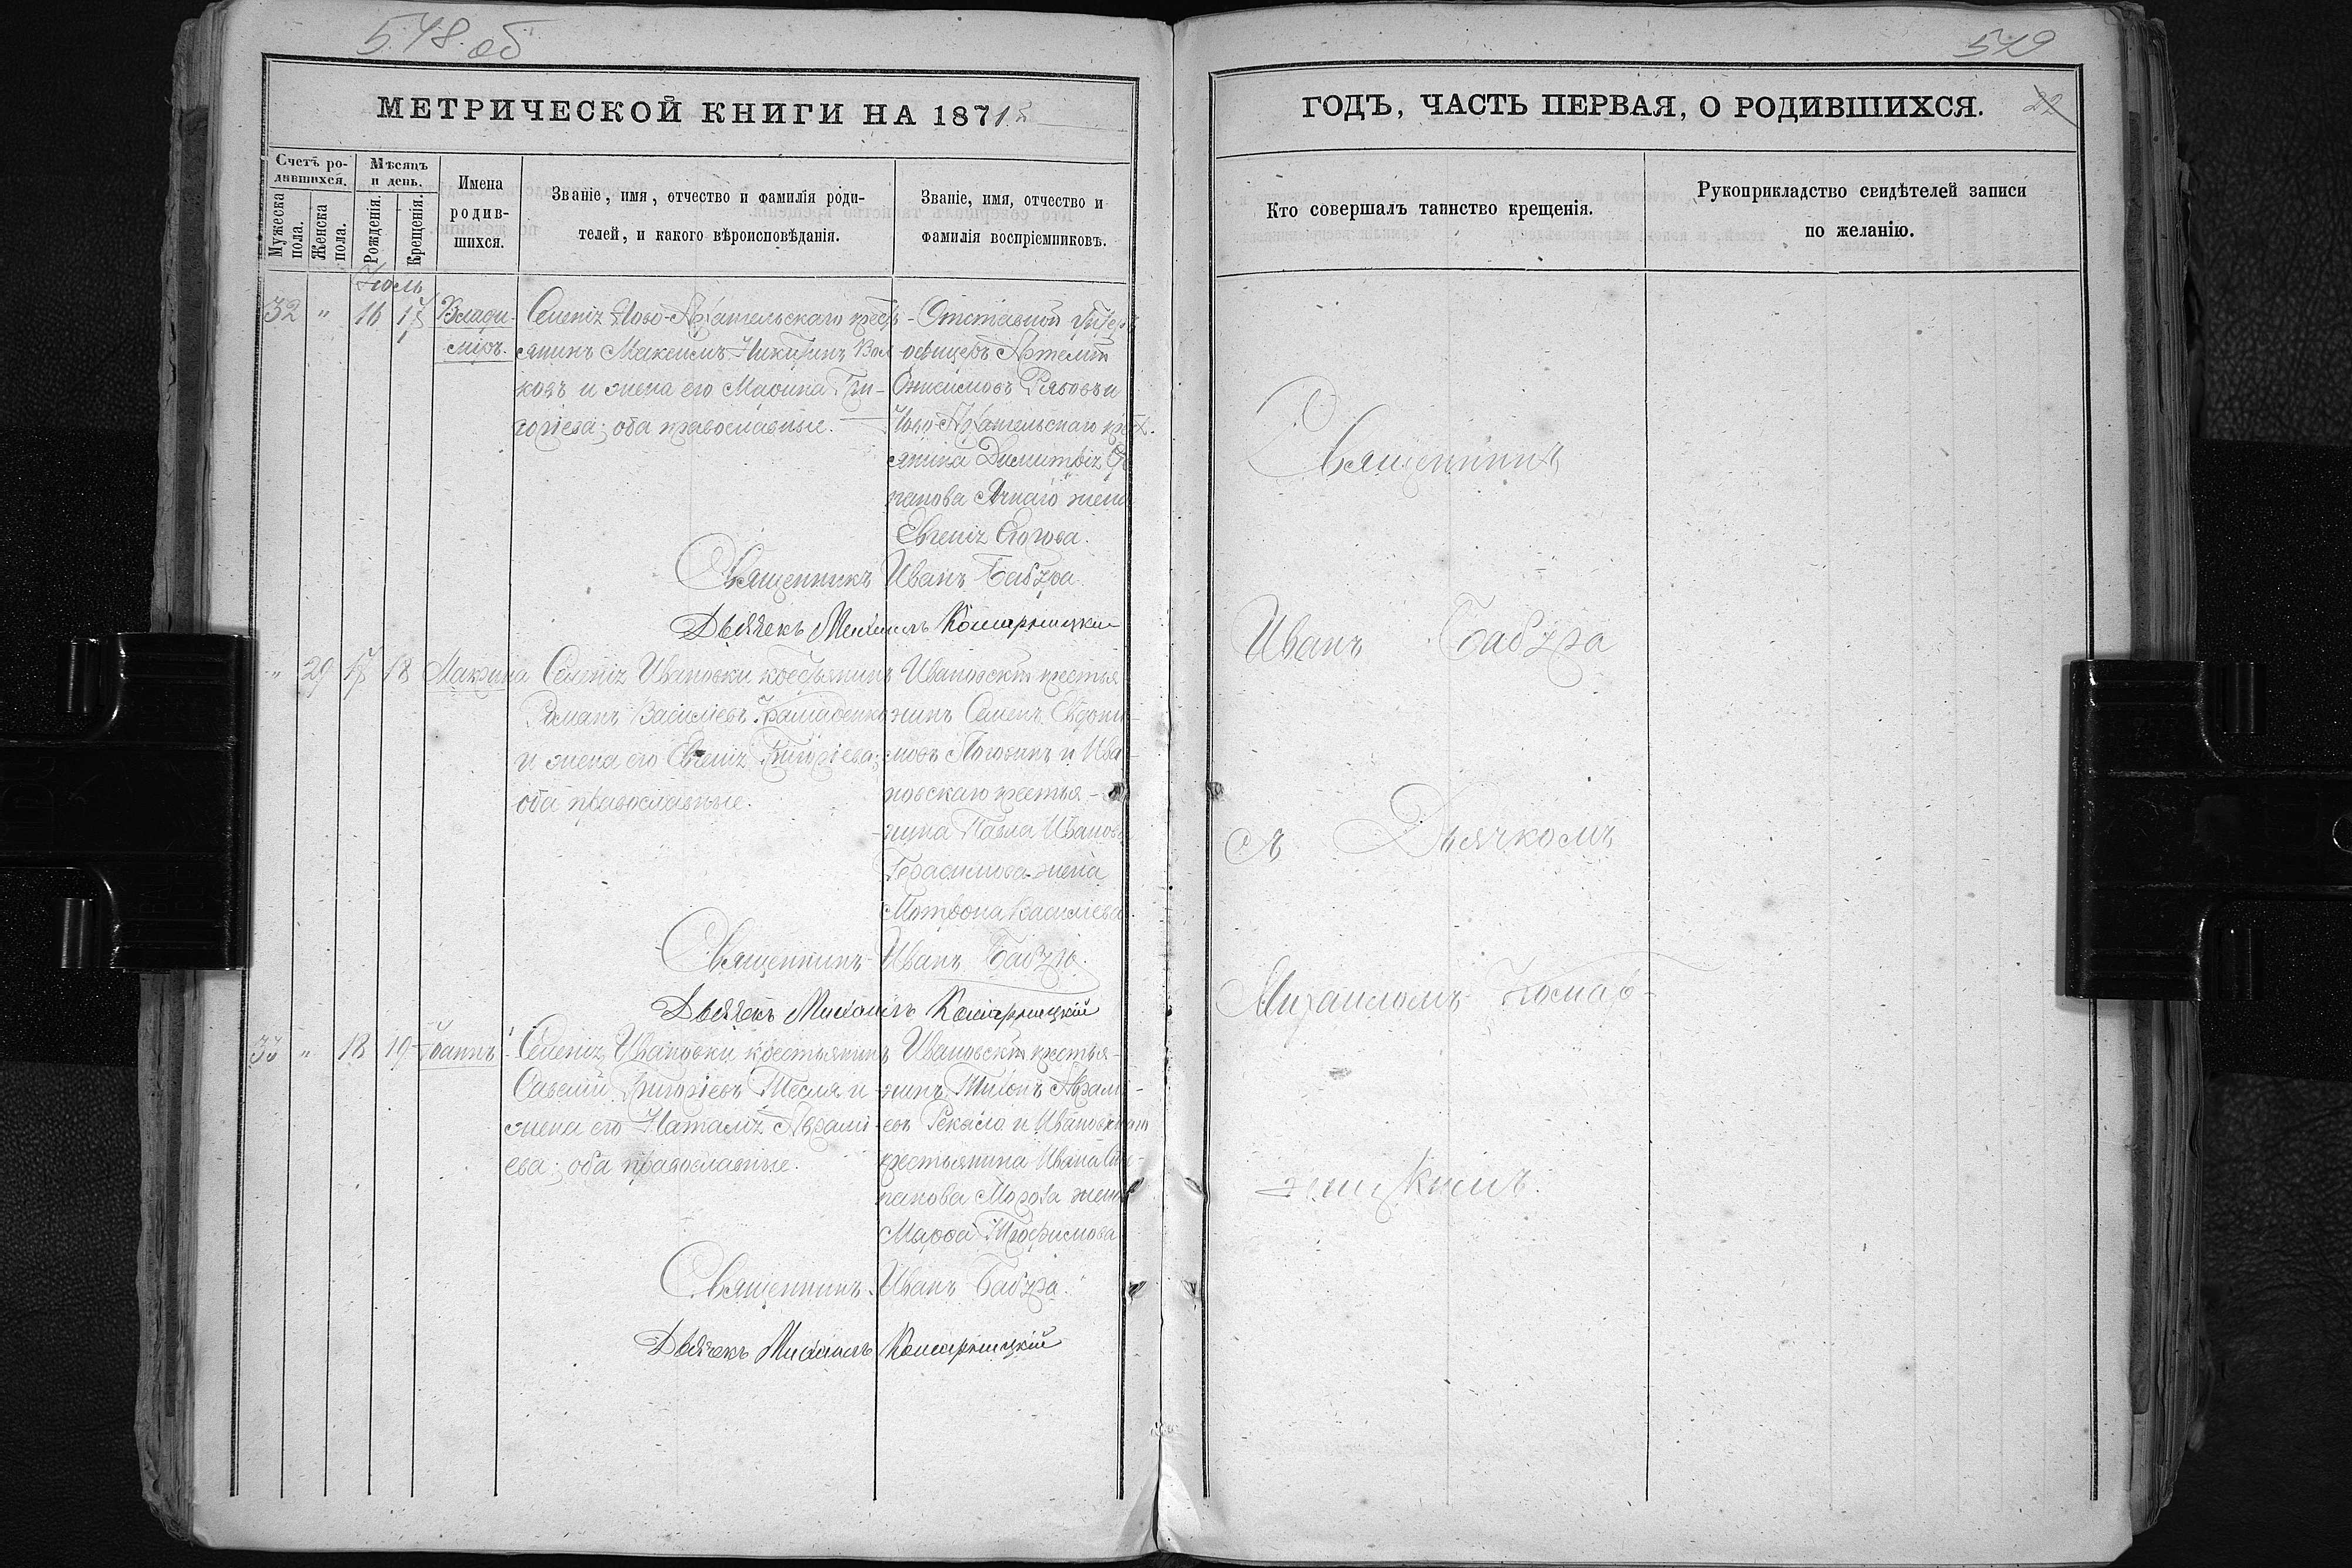 548 об
МЕТРИЧЕСКОЙ КНИГИ НА 1871
Счетъ ро-
дившихся.
Мужеска пола.
Женска пола.
Мѣсяцъ
и день.
Рожденія.
Крещенія.
Имена
родив-
шихся.
Званіе, имя, отчество и фамилія роди-
телей, и какого вѣроисповѣданія.
Званіе, имя, отчество и
фамилія воспріемниковъ.
Іюль
32 " 16 17 Влади-
міръ.
Селенія Ново-Архангельскаго кресть-
янинъ Максимъ Никитинъ Вол
ковъ и жена его Марина Гри-
горіева; оба православные.
Отставной Унтеръ
офицеръ
Онисимовъ Рябовъ и
Ново-Архангельскаго крест.
янина Димитрія
панова жена
Евгенія
Священникъ Иванъ Бабура.
Дьячекъ Михаилъ Комарницкій
" 29 17 18 Макрина
Селенія Ивановки крестьянинъ
Романъ Васильевъ
и жена его Евгенія Григоріева;
оба православные.
Ивановскій крестья
нинъ Семенъ Евдоки-
мовъ и Ива-
новскаго крестья-
нина Павла Иванова
Герасимова жена
Матрона Васильева.
Священникъ Иванъ Бабура.
Дьячекъ Михаилъ Комарницкій
33 " 18 19 Іоаннъ
Селенія Ивановки крестьянинъ
Савелій Григоріевъ Тесля и
жена его Наталія Аврамі-
ева; оба православные.
Ивановскій крестья-
нинъ Тихонъ Аврамі-
евъ и Ивановскаго
крестьянина Ивана Сте-
панова Мороза жена
Марфа Трофимова
Священникъ Иванъ Бабура.
Дьячекъ Михаилъ Комарницкій
549
ГОДЪ, ЧАСТЬ ПЕРВАЯ, О РОДИВШИХСЯ.
22
Кто совершалъ таинство крещенія.
Рукоприкладство свидѣтелей записи
по желанію.
Священникъ
Иванъ Бабура
съ Дьячкомъ
Михаиломъ Комар-
ницкимъ.